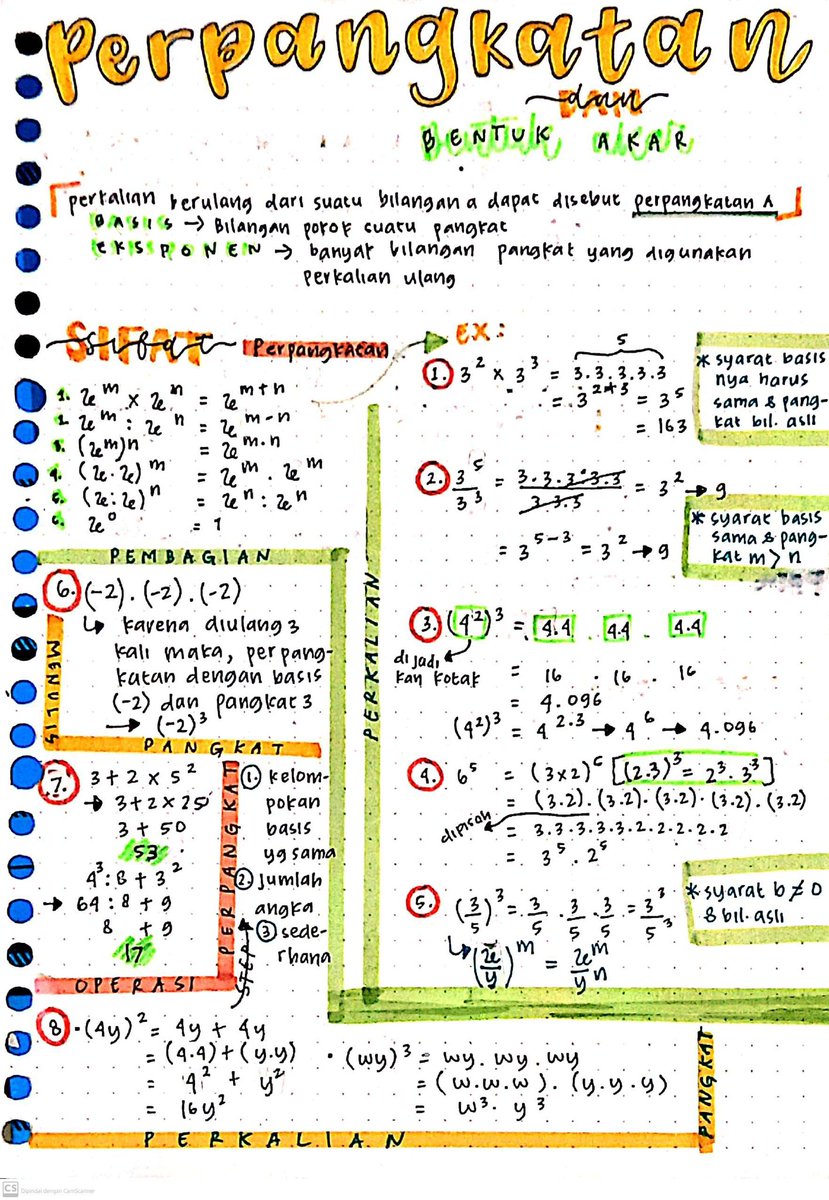 perpangkatan
dan
BENTUK AKAR
perkalian berulang dari suatu bilangan a dapat disebut perpangkatan A
BASIS → Bilangan pokok suatu pangkat
EKSPONEN → banyak bilangan pangkat yang digunakan
perkalian ulang
SIFAT Perpangkatan
1. x^m × x^n = x^m+n
2. x^m : x^n = x^m-n
3. (x^m)n = x^m·n
4. (x·x)^m = x^m · x^m
5. (x:x)^n = x^n : x^n
6. x^0 = 1
EX:
1. 3² × 3³ = 3.3.3.3.3
5
= 3^2+3 = 3⁵
= 163
* syarat basis
nya harus
sama & pang-
kat bil. asli
2. 3⁵/3³ = 3.3.3.3.3/3.3.3 = 3² → 9
= 3^5-3 = 3² → 9
* syarat basis
sama & pang-
kat m > n
3. (4²)³ = 4.4 . 4.4 . 4.4
dijadi
kan kotak
= 16 . 16 . 16
= 4.096
(4²)³ = 4^2.3 → 4⁶ → 4.096
4. 6⁵ = (3×2)⁶ [(2.3)³ = 2³. 3³]
= (3.2).(3.2).(3.2).(3.2).(3.2)
dipisah
= 3.3.3.3.3.2.2.2.2.2
= 3⁵ . 2⁵
5. (3/5)³ = 3/5 . 3/5 . 3/5 = 3³/5³
(x/y)^m = x^m/y^n
* syarat b ≠ 0
& bil. asli
PERKALIAN
PEMBAGIAN
6. (-2).(-2).(-2)
↳ karena diulang 3
kali maka, perpang-
katan dengan basis
(-2) dan pangkat 3
→ (-2)³
MENULIS
PANGKAT
7. 3 + 2 × 5²
→ 3 + 2 × 25
3 + 50
53
4³ : 8 + 3²
→ 64 : 8 + 9
8 + 9
17
OPERASI
PERPANGKAT
STEP
1. kelom-
pokan
basis
yg sama
2. jumlah
angka
3 sede-
rhana
8 • (4y)² = 4y + 4y
= (4.4) + (y.y)
= 4² + y²
= 16y²
• (wy)³ = wy. wy. wy
= (w.w.w). (y.y.y)
= w³. y³
PERKALIAN
PANGKAT
CS Dipindai dengan CamScanner